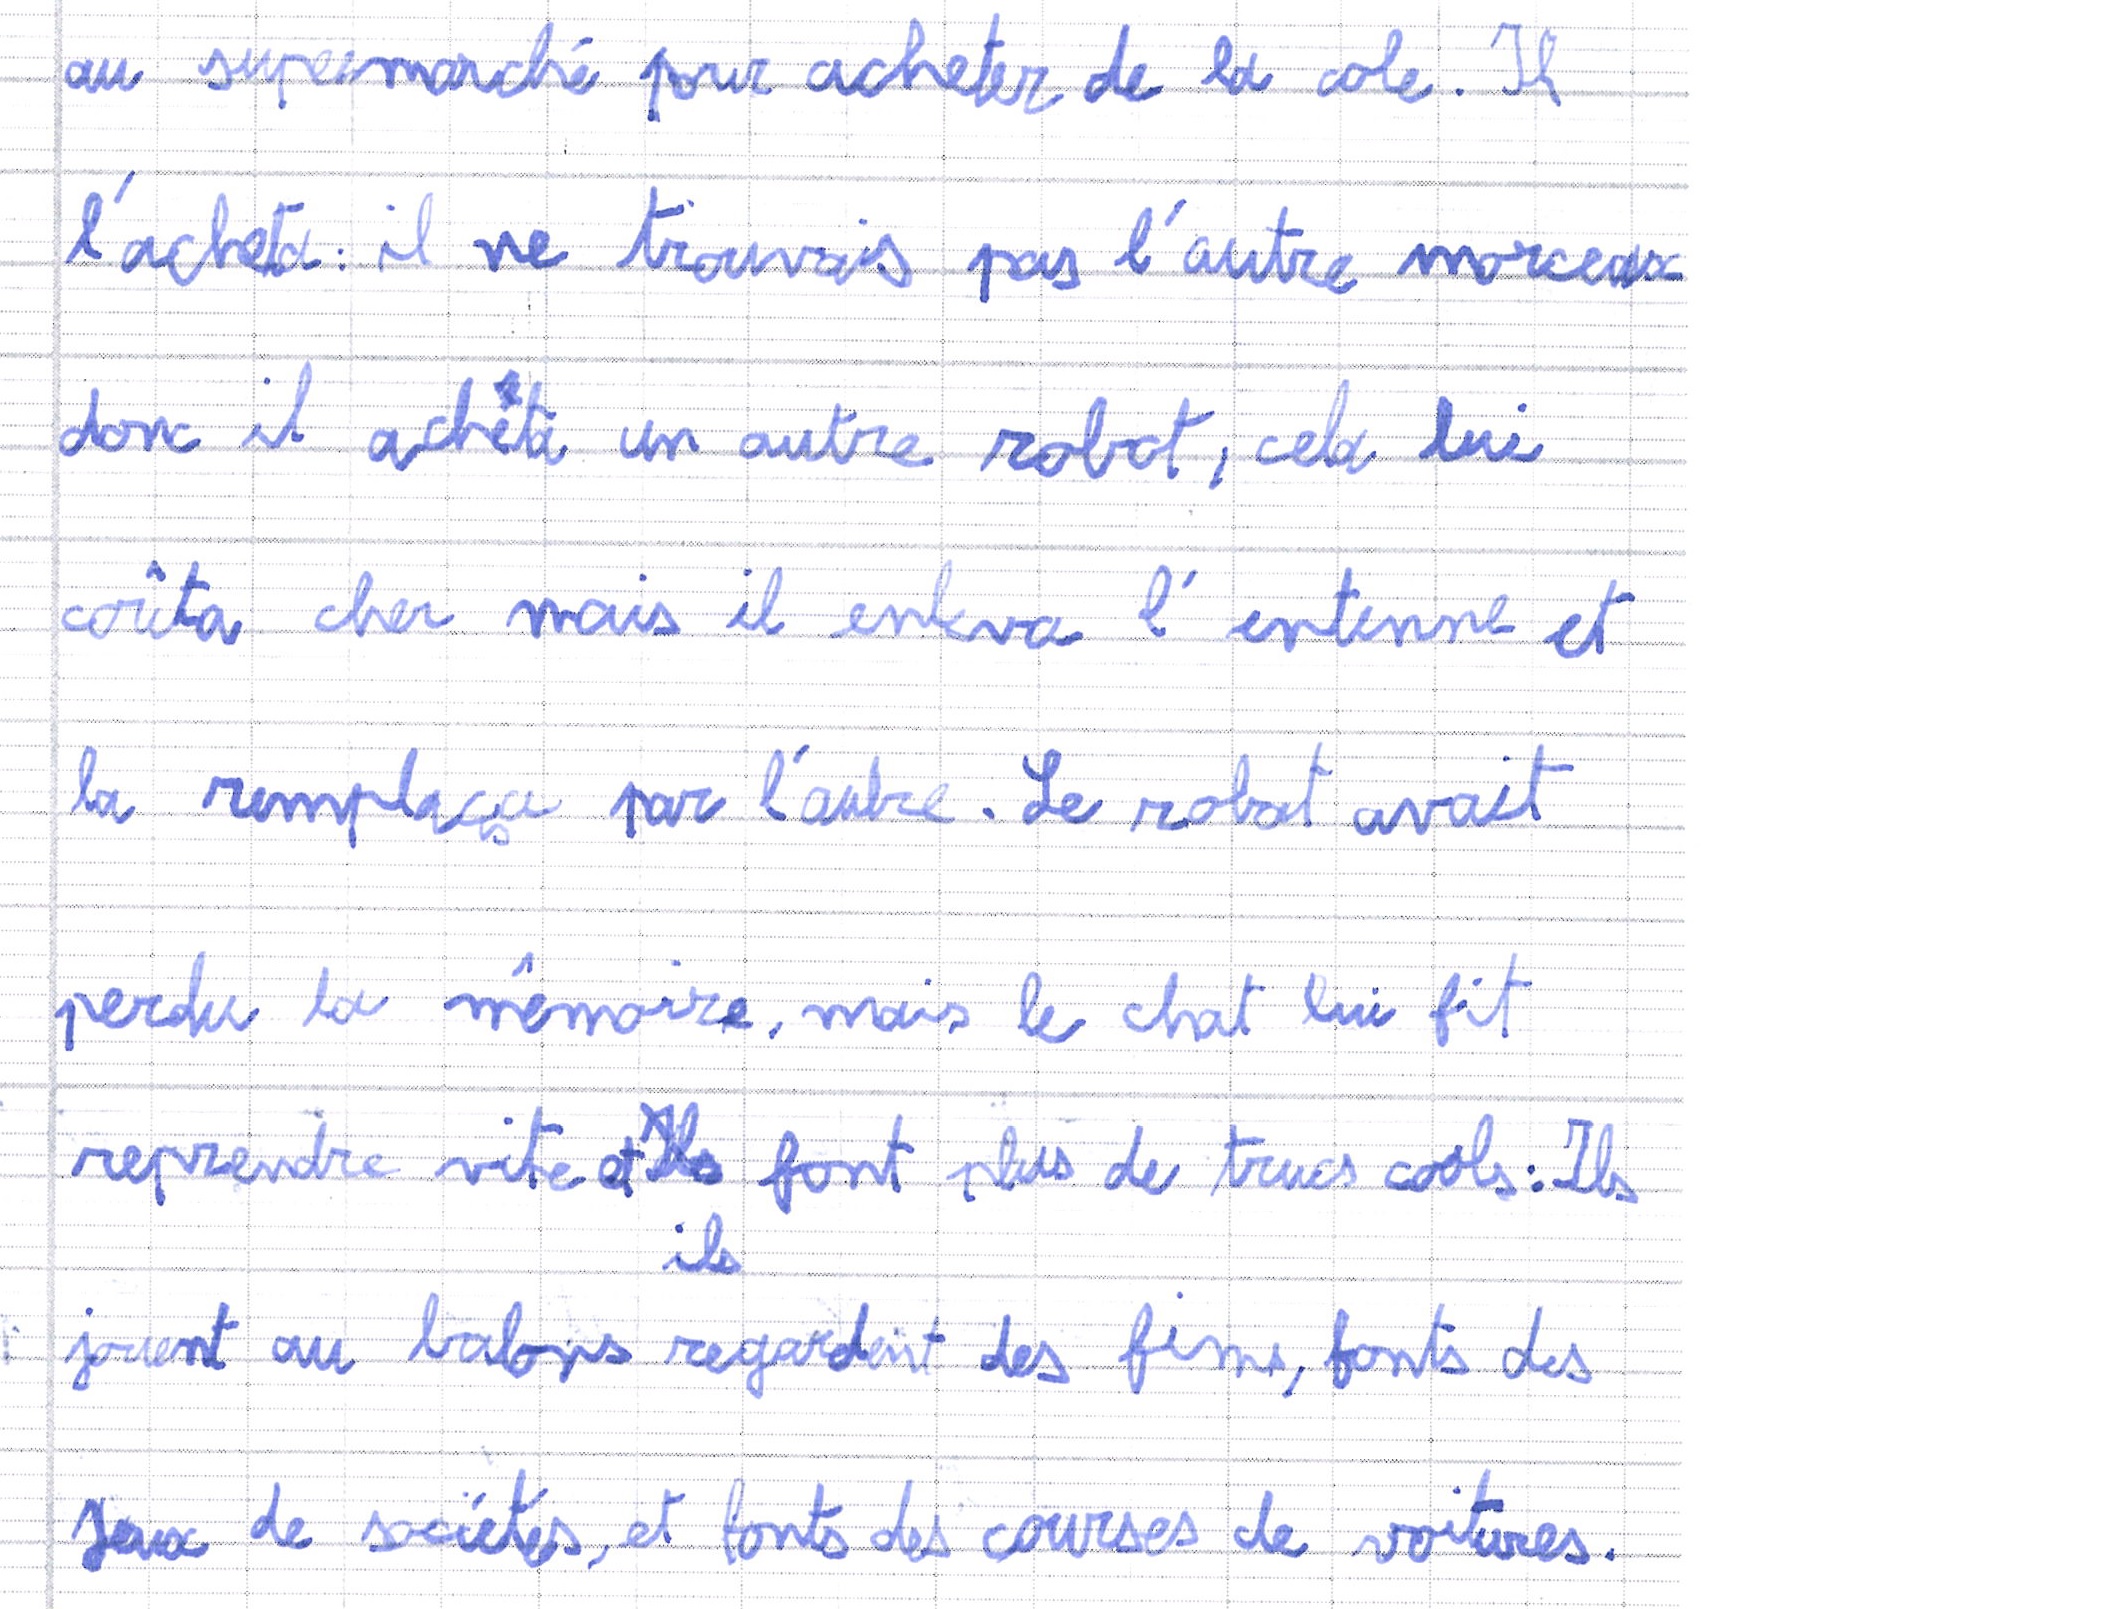 au supermarché pour acheter de la cole. Il
l'acheta: il ne trouvais pas l'autre morceaux
donc il achèta un autre robot, cela lui
coûta cher mais il enleva l'entenne et
la remplaça par l'autre. Le robot avait
perdu la mémoire, mais le chat lui fit
reprendre vite et Ils font plus de trucs cools: Ils
ils
jouent au balons regardent des fims, fonts des
jeux de sociétés, et fonts des courses de voitures.